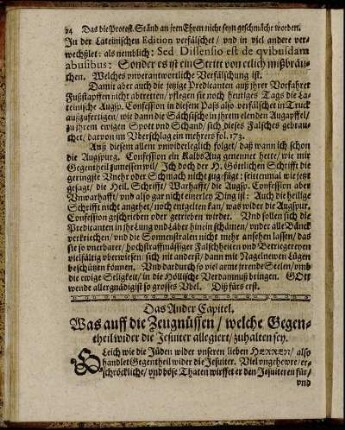 24 Das die Protest. Ständ an jren Ehren nicht seyn geschmächt worden.
In der Lateinischen Edition verfälschet / vnd in viel andere ver-
wechßlet: als nemblich: Sed Dissensio est de qvibusdam
abusibus: Sonder es ist ein Stritt von etlich mißbräu-
chen. Welches vnverantwortliche Verfälschung ist.
Damit aber auch die jezige Predicanten auß jhrer Vorfahrer
Fußstapffen nicht abtretten / pflegen sie noch heutiges Tags die La-
teinische Augsp. Confession in diesem Paß also verfälschet in Truck
außzufertigen / wie dann die Sächsischen in jhrem elenden Augapffel /
zu jhrem ewigen Spott vnd Schand / sich dieses Falsches gebrau-
chet / darvon im Vberschlag ein mehrers fol. 173.
Auß diesem allem vnwiderleglich folget / daß wann ich schon
die Augspurg. Confession ein Kalbs Aug genennet hette / wie mir
Gegentheil zumessen wil / Ich doch der H. Göttlichen Schrifft die
geringste Vnehr oder Schmach nicht zugefügt: seitenmal wie jetzt
gesagt / die Heil. Schrifft / Warhafft / die Augsp. Confession aber
Vnwarhafft / vnd also gar nicht einerley Ding ist: Auch die heilige
Schrifft nicht angehet / noch entgelten kan / was wider die Augspur.
Confession geschrieben oder getrieben würdet. Vnd sollen sich die
Predicanten in jhr Lug vnd Läster hinein schämen / vnder alle Bänck
verkriechen / vnd die Sonnenstralen nicht mehr ansehen lassen / das
sie so vnerbarer / hochsträffmässiger Falschheiten vnd Betriegereyen
vielfältig vberwiesen: sich nit anderst / dann mit Nagelnewen Lügen
beschützen können. Vnd dardurch so viel arme jrrende Seelen / vmb
die ewige Seligkeit / in die Höllische Verdammnuß bringen. GOtt
wende allergnädigist so grosses Vbel. Diß fürs erst.
Das Ander Capitel.
Was auff die Zeugnüssen / welche Gegen-
theil wider die Jesuiter allegiert / zuhalten sey.
Gleich wie die Jüden wider vnseren lieben HERREN / also
handlet Gegentheil wider die Jesuiter. Viel vngehewre / er-
schröckliche / vnd böse Thaten wirfft er den Jesuiteren für /
vnd